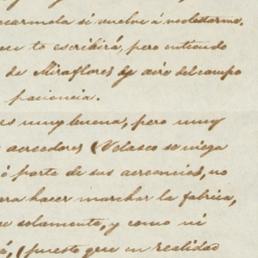 si vuelve á molestarme.
te escribirá, pero entiendo
de Miraflores y aire del campo
paciencia.
es muy buena, pero muy
acreedores (Velasco se niega
ó parte de sus acreencias, no
para hacer marchar la fabrica,
solamente, y como ni
(puesto que en realidad